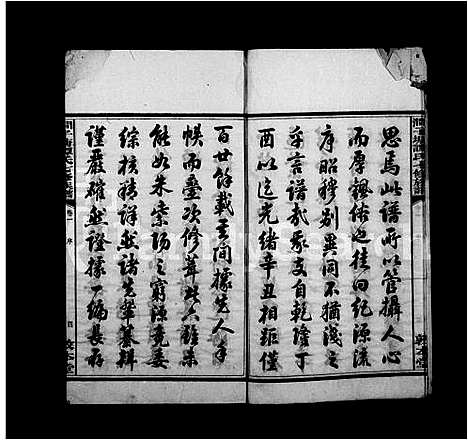 思焉此譜所以管攝人心
而厚俗之往紀源流
序昭穆別異同不猶淺之
乎言譜哉支自乾隆丁
酉以迄光緒辛丑相距僅
百廿餘載其間據先人手
帙而疊次修葺此六雖未
能如朱紫陽之窮源竟委
綜核精詳然諸先輩纂輯
謹嚴確然證據一編長存
序
FamilySearch